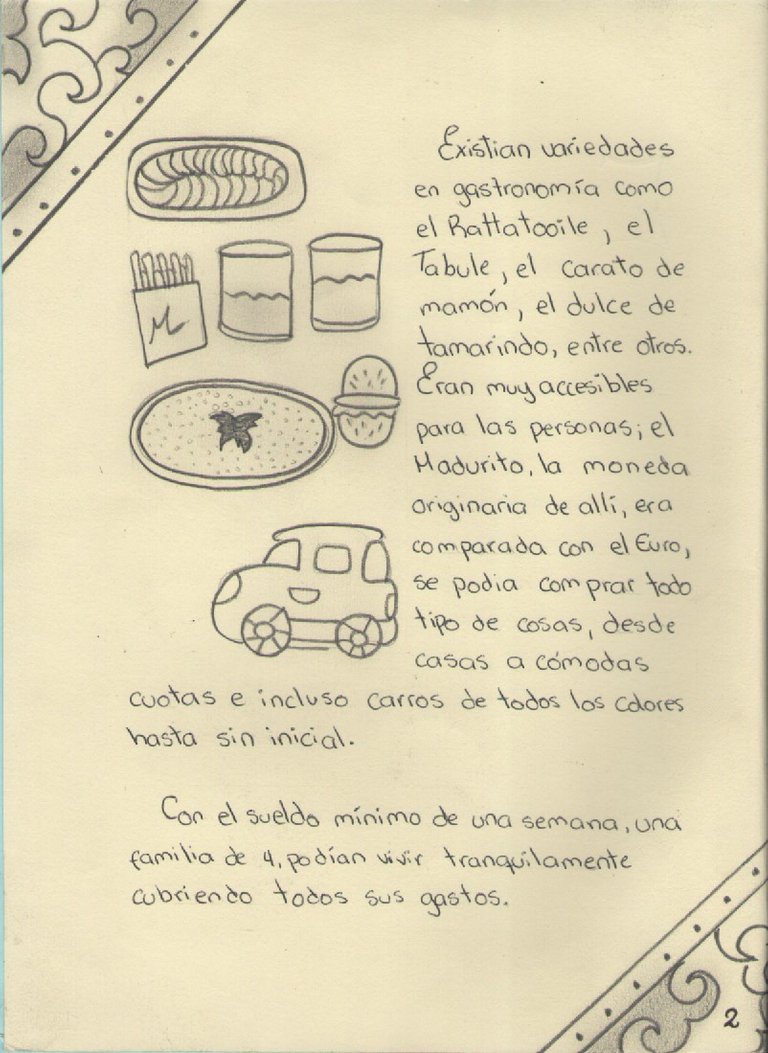 M
Existian variedades
en gastronomía como
el Rattatooile, el
Tabule, el carato de
mamón, el dulce de
tamarindo, entre otros.
Eran muy accesibles
para las personas; el
Madurito, la moneda
originaria de allí, era
comparada con el Euro,
se podia comprar todo
tipo de cosas, desde
casas a cómodas
cuotas e incluso carros de todos los colores
hasta sin inicial.
Con el sueldo mínimo de una semana, una
familia de 4, podían vivir tranquilamente
cubriendo todos sus gastos.
2